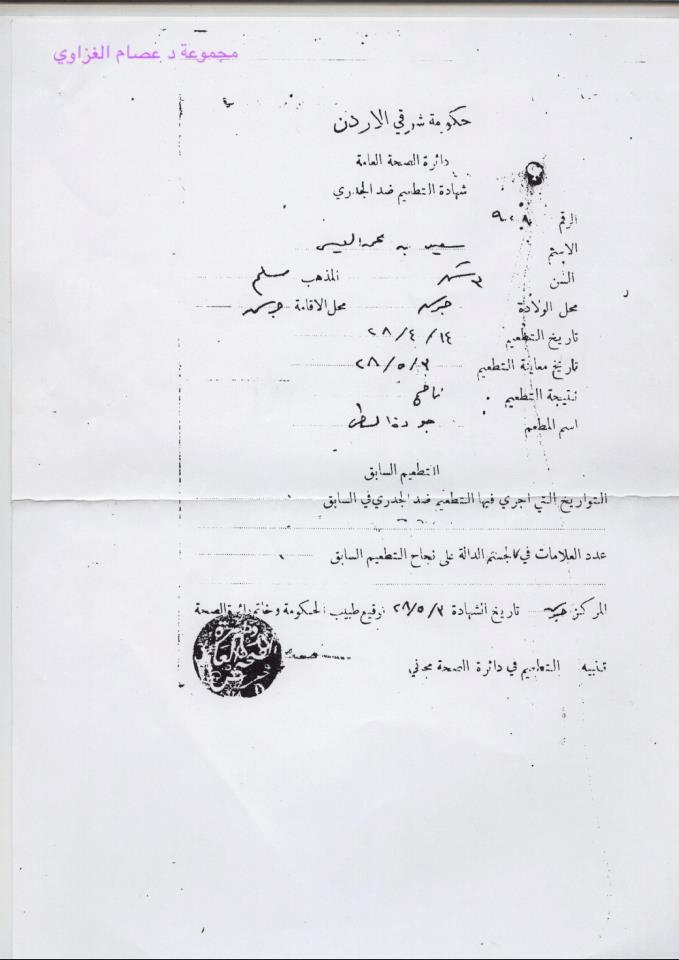 مجموعة د عصام الغزاوي
حكومة شرقي الاردن
دائرة الصحة العامة
شهادة التطعيم ضد الجدري
الرقم
الاسم سعيد به محمد العيسى
السن ٣ شهر المذهب مسلم
محل الولادة جرش محل الاقامة جرش
تاريخ التطعيم ١٤/ ٤/ ٢٨
تاريخ معاينة التطعيم ٣/ ٥/ ٢٨
نتيجة التطعيم ناجح
اسم المطعم جودة
التطعيم السابق
التواريخ التي اجري فيها التطعيم ضد الجدري في السابق
عدد العلامات في الجسم الدالة على نجاح التطعيم السابق
المركز جرش تاريخ الشهادة ٣/ ٥/ ٢٨ توقيع طبيب الحكومة وخاتم دائرة الصحة
تنبيه التطعيم في دائرة الصحة مجاني